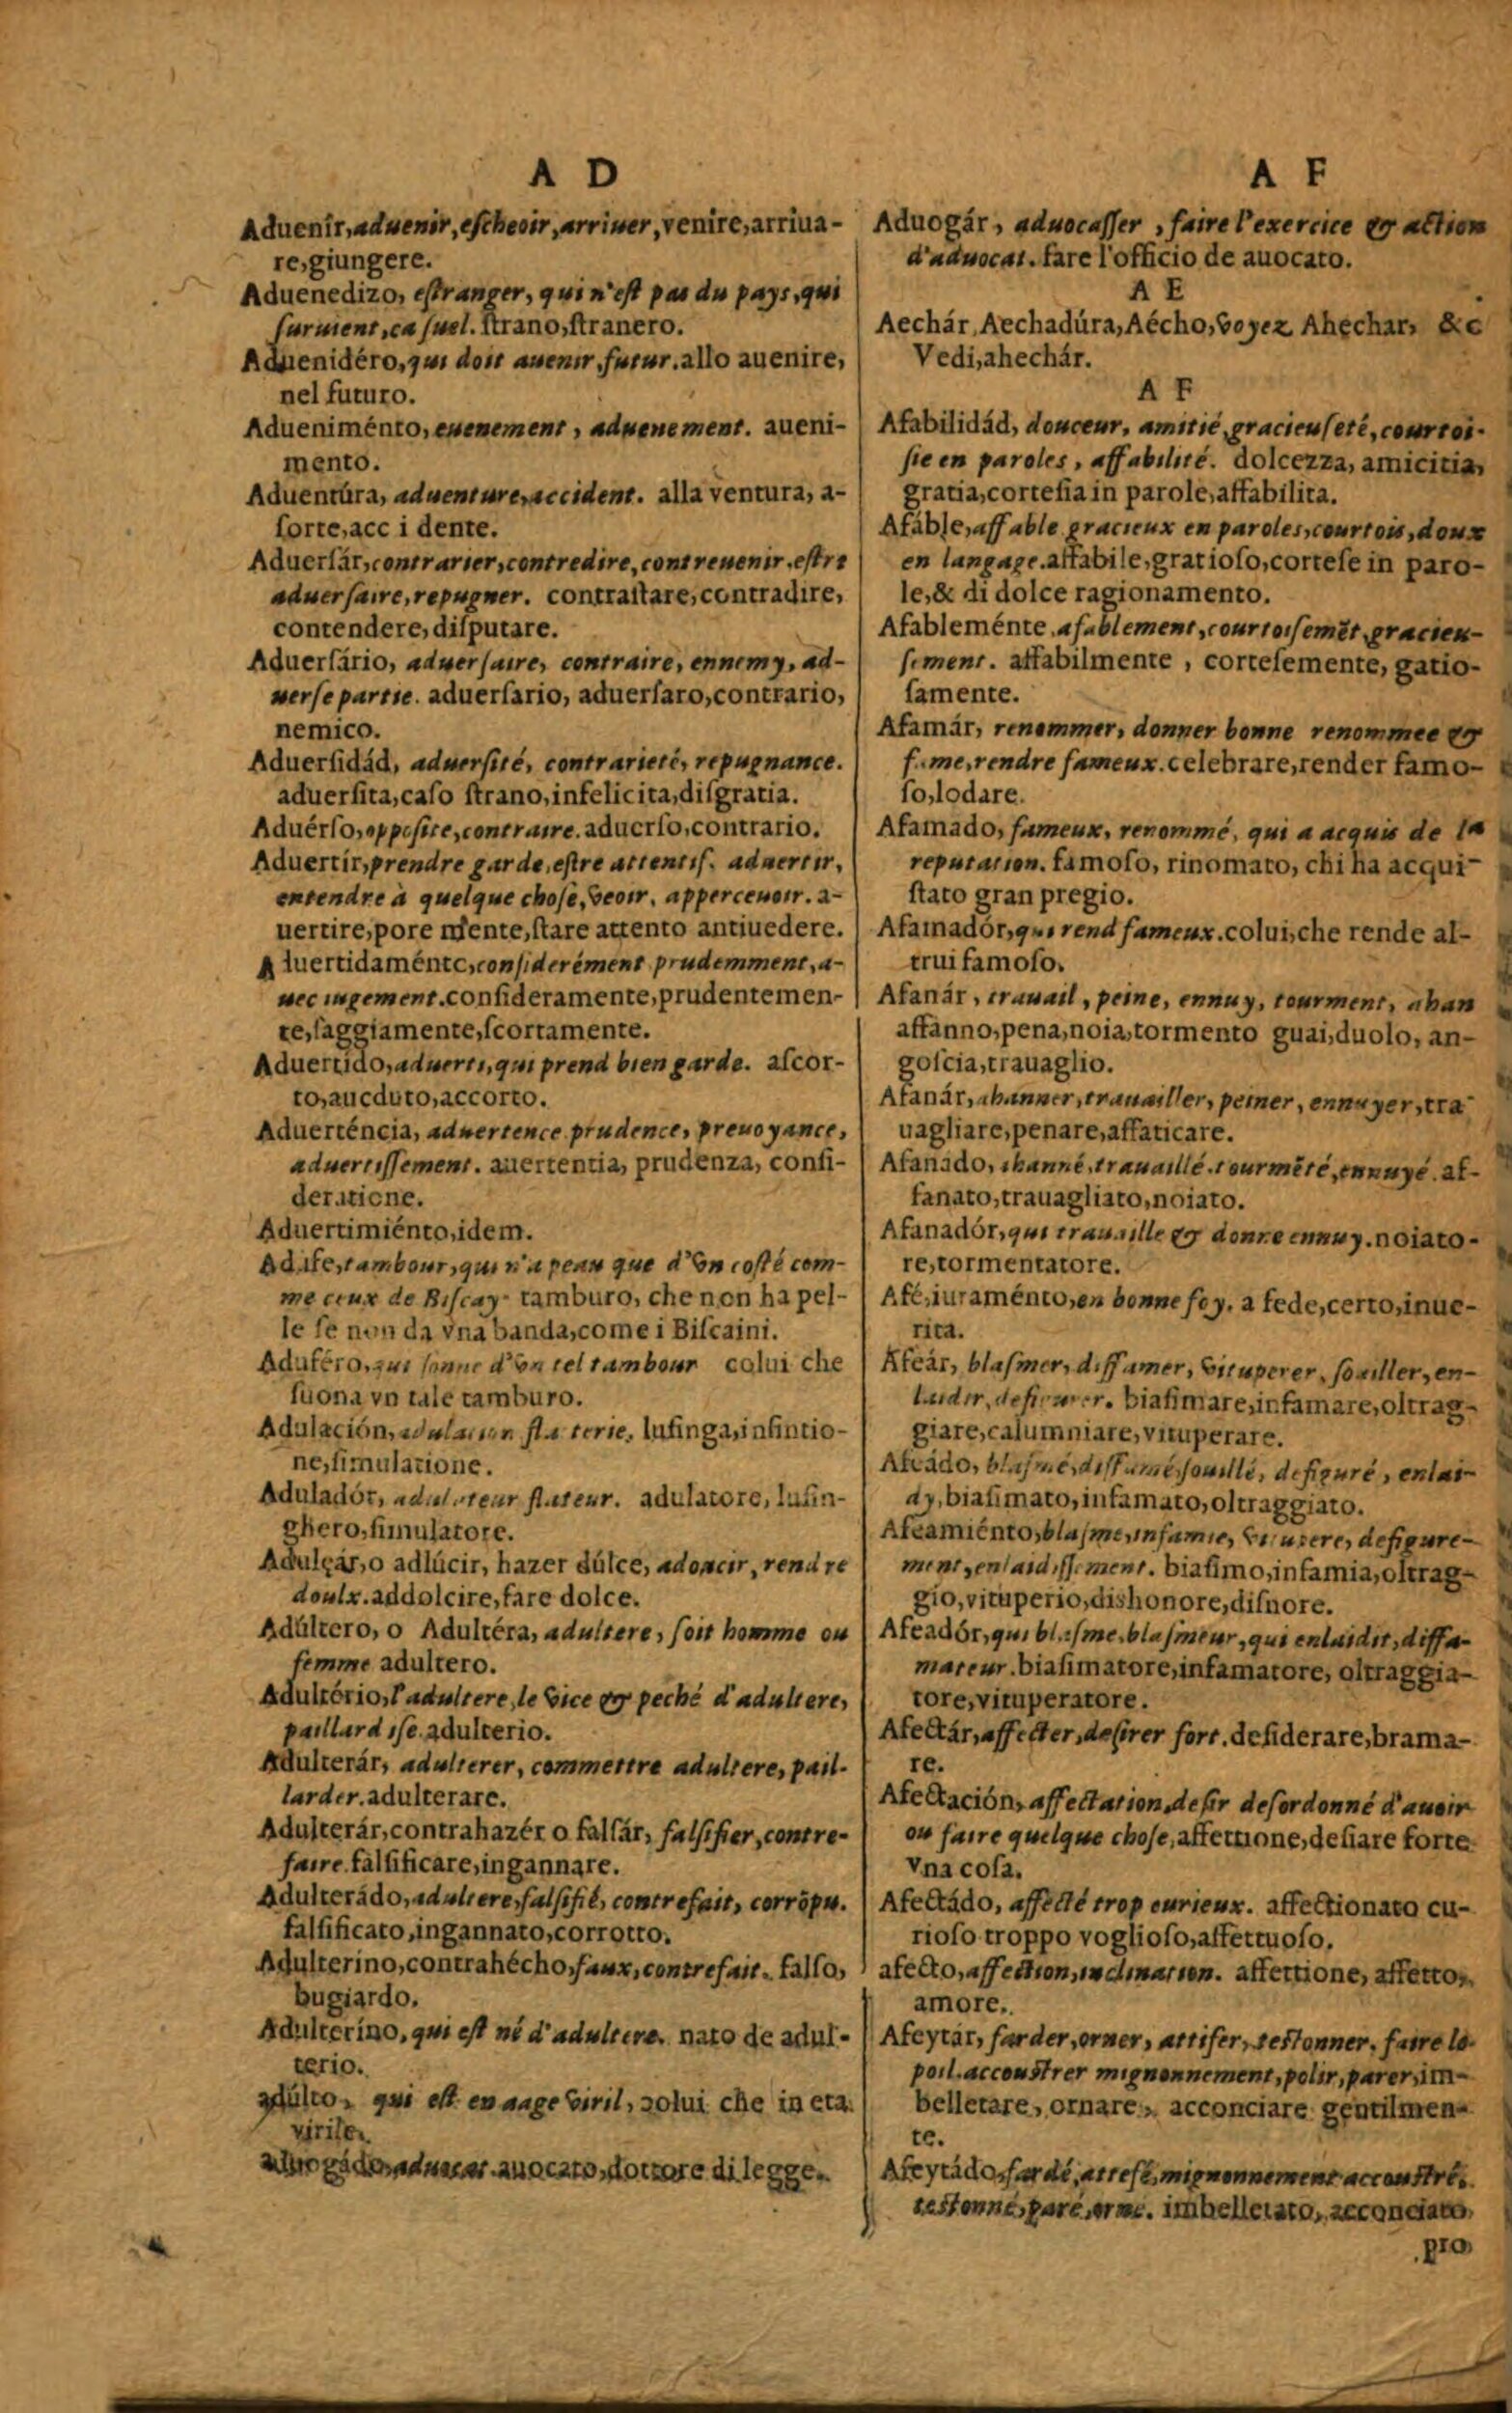 A D
Aduenîr, aduenir, eſcheoir, arriuer, venire, arriua-
re, giungere.
Aduenedizo, eſtranger, qui n'eſt pas du pays, qui
ſuruient, caſuel. ſtrano, ſtranero.
Aduenidéro, qui doit auenir, futur. allo auenire,
nel futuro.
Adueniménto, euenement, aduenement. aueni-
mento.
Aduentúra, aduenture, accident. alla ventura, a-
ſorte, acc i dente.
Aduerſár, contrarier, contredire, contreuenir, eſtre
aduerſaire, repugner. contraſtare, contradire,
contendere, diſputare.
Aduerſário, aduerſaire, contraire, ennemy, ad-
uerſe partie. aduerſario, aduerſaro, contrario,
nemico.
Aduerſidád, aduerſité, contrarieté, repugnance.
aduerſita, caſo ſtrano, infelicita, diſgratia.
Aduérſo, oppoſite, contraire. aduerſo, contrario.
Aduertír, prendre garde, eſtre attentif. aduertir,
entendre à quelque choſe, veoir, apperceuoir. a-
uertire, pore mente, ſtare attento antiuedere.
Aduertidaménte, conſiderément prudemment, a-
uec iugement. conſideramente, prudentemen-
te, ſaggiamente, ſcortamente.
Aduertido, aduerti, qui prend bien garde. aſcor-
to, aueduto, accorto.
Aduerténcia, aduertence prudence, preuoyance,
aduertiſſement. auertentia, prudenza, conſi-
deratione.
Aduertimiénto, idem.
Adufe, tambour, qui n'a peau que d'vn coſté com-
me ceux de Biſcay. tamburo, che non ha pel-
le ſe non da vna banda, come i Biſcaini.
Aduféro, qui ſonne d'vn tel tambour colui che
ſuona vn tale tamburo.
Adulación, adulation flaterie, luſinga, infintio-
ne, ſimulatione.
Aduladór, adulateur flateur. adulatore, luſin-
ghero, ſimulatore.
Adulçár, o adlúcir, hazer dúlce, adoucir, rendre
doulx. addolcire, fare dolce.
Adúltero, o Adultéra, adultere, ſoit homme ou
femme adultero.
Adultério, l'adultere, le vice & peché d'adultere,
paillardiſe. adulterio.
Adulterár, adulterer, commettre adultere, pail-
larder. adulterare.
Adulterár, contrahazér o falſár, falſifier, contre-
faire. falſificare, ingannare.
Adulterádo, adultere, falſifié, contrefait, corrõpu.
falſificato, ingannato, corrotto.
Adulterino, contrahécho, faux, contrefait. falſo,
bugiardo.
Adulteríno, qui eſt né d'adultere. nato de adul-
terio.
adúlto, qui eſt en aage viril, colui che in eta
virile.
aduogádo, aduocat. auocato, dottore di legge.
A F
Aduogár, aduocaſſer, faire l'exercice & action
d'aduocat. fare l'officio de auocato.
A E
Aechár, Aechadúra, Aécho, voyez Ahechar, &c
Vedi, ahechár.
A F
Afabilidád, douceur, amitié, gracieuſeté, courtoi-
ſie en paroles, affabilité. dolcezza, amicitia,
gratia, corteſia in parole, affabilita.
Afáble, affable gracieux en paroles, courtois, doux
en langage. affabile, gratioſo, corteſe in paro-
le, & di dolce ragionamento.
Afableménte, afablement, courtoiſemẽt, gracieu-
ſement. affabilmente, corteſemente, gatio-
ſamente.
Afamár, renommer, donner bonne renommee &
fame, rendre fameux. celebrare, render famo-
ſo, lodare.
Afamado, fameux, renommé, qui a acquis de la
reputation. famoſo, rinomato, chi ha acqui-
ſtato gran pregio.
Afamadór, qui rend fameux. colui, che rende al-
trui famoſo.
Afanár, trauail, peine, ennuy, tourment, ahan
affanno, pena, noia, tormento guai, duolo, an-
goſcia, trauaglio.
Afanár, ahanner, trauailler, peiner, ennuyer, tra-
uagliare, penare, affaticare.
Afanado, ahanné, trauaillé, tourmẽté, ennuyé. af-
fanato, trauagliato, noiato.
Afanadór, qui trauaille & donne ennuy. noiato-
re, tormentatore.
Afé, iuraménto, en bonne foy. a fede, certo, inue-
rita.
Afeár, blaſmer, diffamer, vituperer, ſouiller, en-
laidir, defigurer. biaſimare, infamare, oltrag-
giare, calumniare, vituperare.
Afeádo, blaſmé, diffamé, ſouillé, defiguré, enlai-
dy, biaſimato, infamato, oltraggiato.
Afeamiénto, blaſme, infamie, vitupere, defigure-
ment, enlaidiſſement. biaſimo, infamia, oltrag-
gio, vituperio, dishonore, diſnore.
Afeadór, qui blaſme, blaſmeur, qui enlaidit, diffa-
mateur. biaſimatore, infamatore, oltraggia-
tore, vituperatore.
Afectár, affecter, deſirer fort. deſiderare, brama-
re.
Afectación, affectation, deſir deſordonné d'auoir
ou faire quelque choſe, affettione, deſiare forte
vna coſa.
Afectádo, affecté trop curieux. affectionato cu-
rioſo troppo voglioſo, affettuoſo.
afecto, affection, inclination. affettione, affetto,
amore.
Afeytár, farder, orner, attifer, teſtonner, faire le
poil. accouſtrer mignonnement, polir, parer, im-
belletare, ornare, acconciare gentilmen-
te.
Afeytádo, fardé, attefé, mignonnement accouſtré,
teſtonné, paré, orné. imbelletato, acconciato
pro